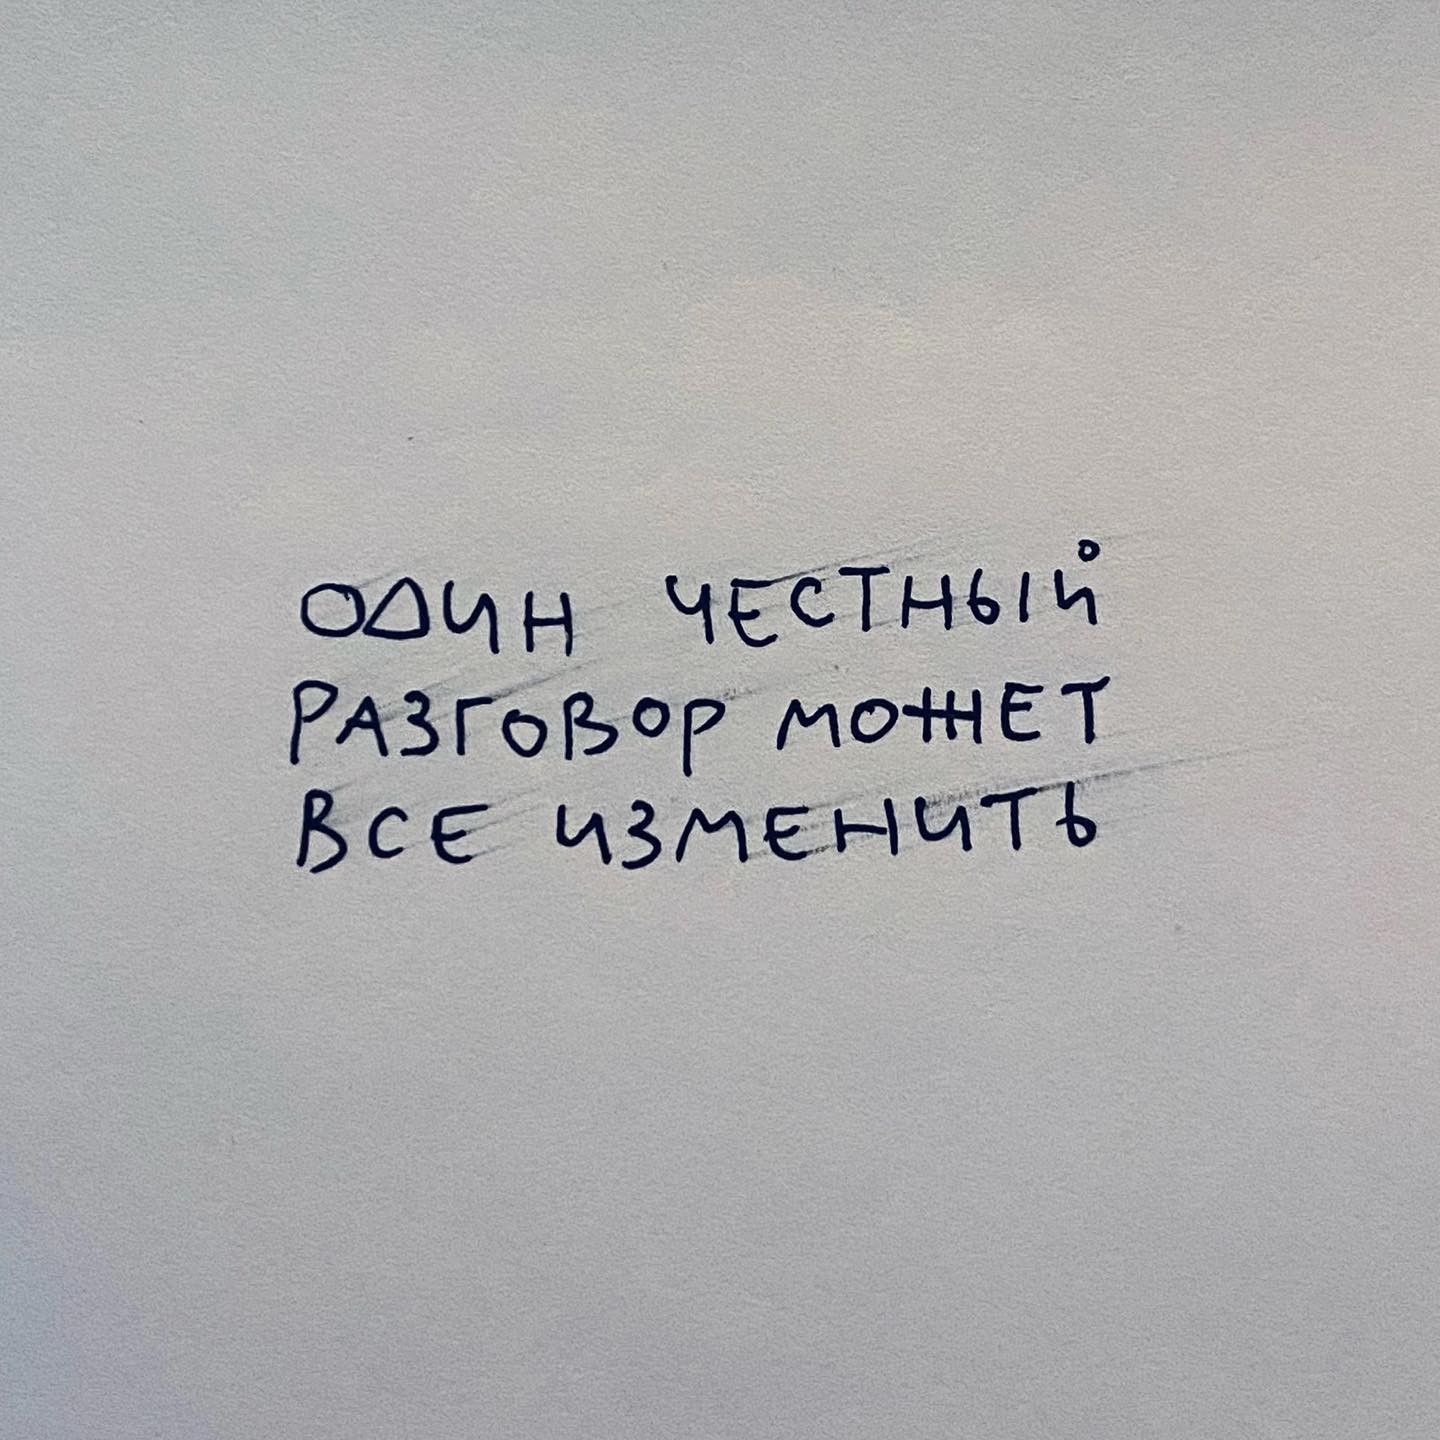 ОДИН ЧЕСТНЫЙ
РАЗГОВОР МОЖЕТ
ВСЕ ИЗМЕНИТЬ